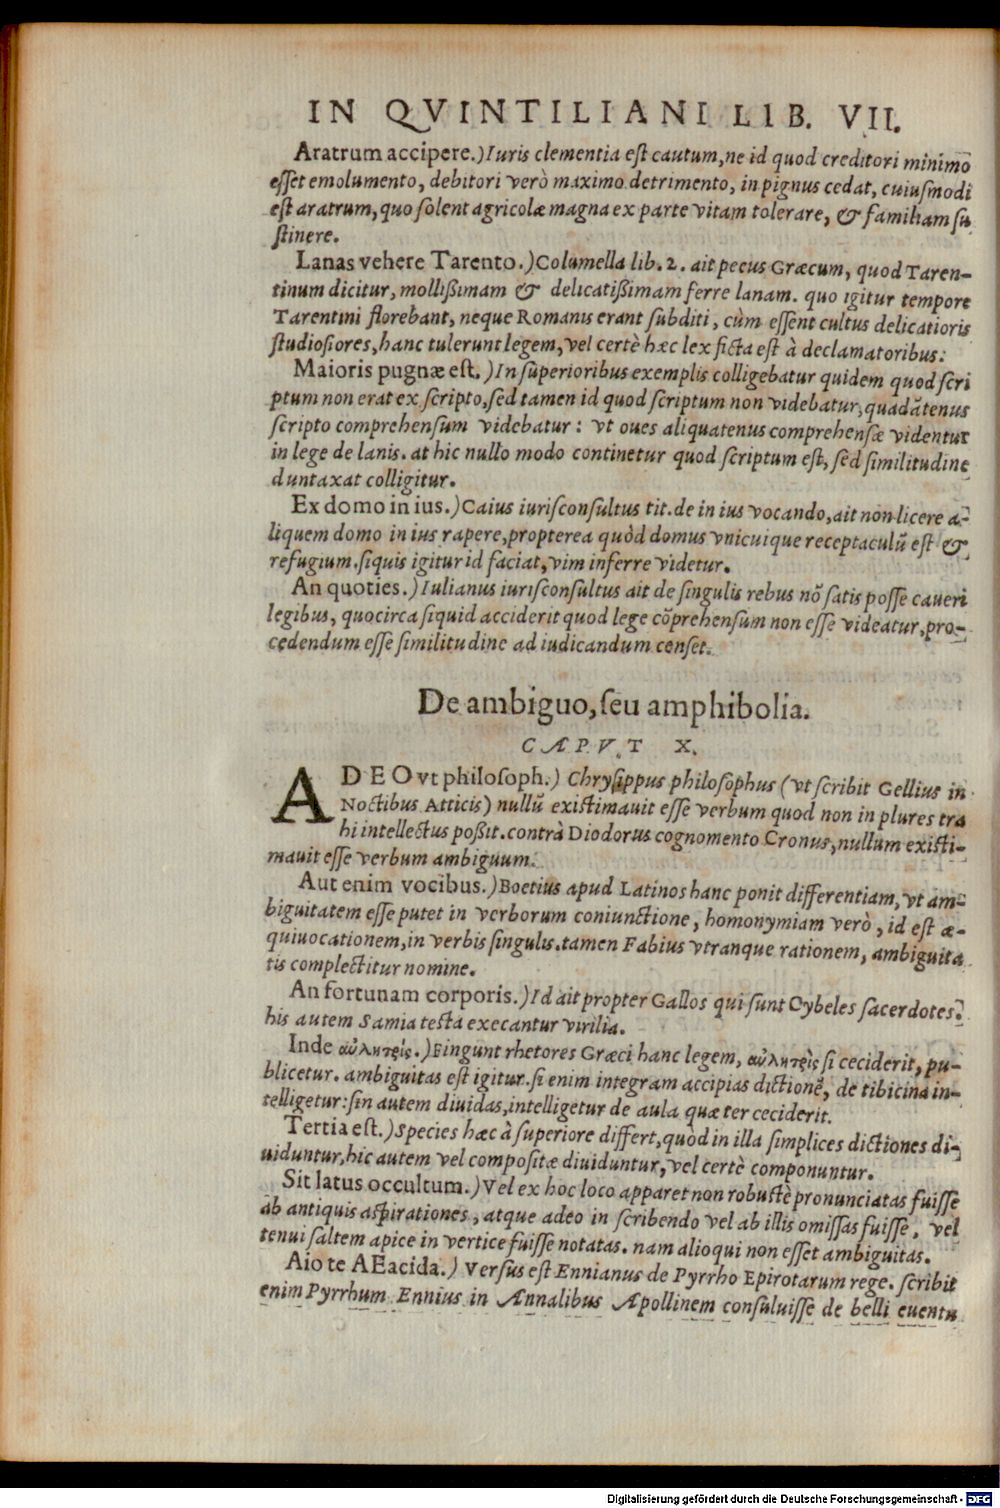 IN QVINTILIANI LIB. VII.
Aratrum accipere.) Iuris clementia est cautum, ne id quod creditori minimō
esset emolumento, debitori verò maximo detrimento, in pignus cedat, cuiusmodi
est aratrum, quo solent agricolæ magna ex parte vitam tolerare, & familiam su
stinere.
Lanas vehere Tarento.) Columella lib. 2. ait pecus Græcum, quod Taren-
tinum dicitur, mollißimam & delicatißimam ferre lanam. quo igitur tempore
Tarentini florebant, neque Romanis erant subditi, cùm essent cultus delicatioris
studiosiores, hanc tulerunt legem, vel certè hæc lex ficta est à declamatoribus.
Maioris pugnæ est.) In superioribus exemplis colligebatur quidem quod scri
ptum non erat ex scripto, sed tamen id quod scriptum non videbatur, quadātenus
scripto comprehensum videbatur: vt oues aliquatenus comprehensæ videntur
in lege de lanis. at hic nullo modo continetur quod scriptum est, sed similitudine
duntaxat colligitur.
Ex domo in ius.) Caius iurisconsultus tit. de in ius vocando, ait non licere a-
liquem domo in ius rapere, propterea quòd domus vnicuique receptaculū est &
refugium. siquis igitur id faciat, vim inferre videtur.
An quoties.) Iulianus iurisconsultus ait de singulis rebus nō satis posse caueri
legibus, quocirca siquid acciderit quod lege cōprehensum non esse videatur, pro-
cedendum esse similitudine ad iudicandum censet.
De ambiguo, seu amphibolia.
CAPVT X.
ADEO vt philosoph.) Chrysippus philosophus (vt scribit Gellius in
Noctibus Atticis) nullū existimauit esse verbum quod non in plures tra
hi intellectus poßit. contrà Diodorus cognomento Cronus, nullum existi-
mauit esse verbum ambiguum.
Aut enim vocibus.) Boetius apud Latinos hanc ponit differentiam, vt am-
biguitatem esse putet in verborum coniunctione, homonymiam verò, id est æ-
quiuocationem, in verbis singulis. tamen Fabius vtranque rationem, ambiguita
tis complectitur nomine.
An fortunam corporis.) Id ait propter Gallos qui sunt Cybeles sacerdotes.
his autem Samia testa execantur virilia.
Inde αὐλητρίς.) Fingunt rhetores Græci hanc legem, αὐλητρὶς si ceciderit, pu-
blicetur. ambiguitas est igitur. si enim integram accipias dictionē, de tibicina in-
telligetur: sin autem diuidas, intelligetur de aula quæ ter ceciderit.
Tertia est.) Species hæc à superiore differt, quod in illa simplices dictiones di-
uiduntur, hic autem vel compositæ diuiduntur, vel certè componuntur.
Sit latus occultum.) Vel ex hoc loco apparet non robustè pronunciatas fuisse
ab antiquis aspirationes, atque adeo in scribendo vel ab illis omissas fuisse, vel
tenui saltem apice in vertice fuisse notatas. nam alioqui non esset ambiguitas.
Aio te AEacida.) Versus est Ennianus de Pyrrho Epirotarum rege. scribit
enim Pyrrhum Ennius in Annalibus Apollinem consuluisse de belli euentu
Digitalisierung gefördert durch die Deutsche Forschungsgemeinschaft - DFG